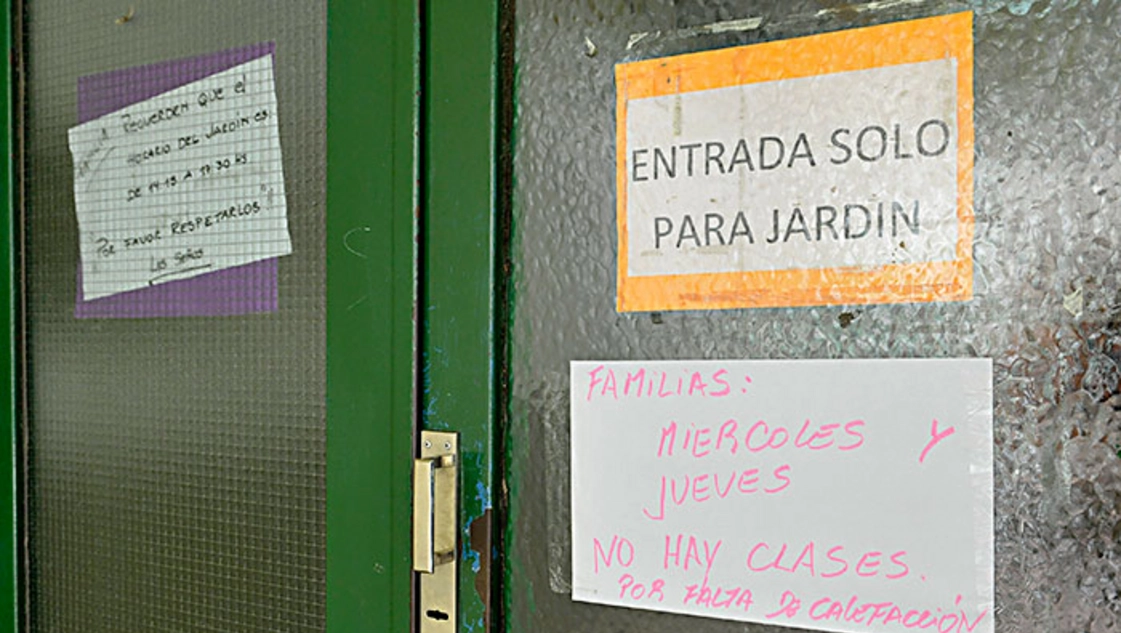 RECUERDEN QUE EL
HORARIO DEL JARDIN ES
DE 14:15 A 17:30 HS
POR FAVOR RESPETARLOS
ENTRADA SOLO
PARA JARDIN
FAMILIAS:
MIERCOLES Y
JUEVES
NO HAY CLASES.
POR FALTA DE CALEFACCIÓN